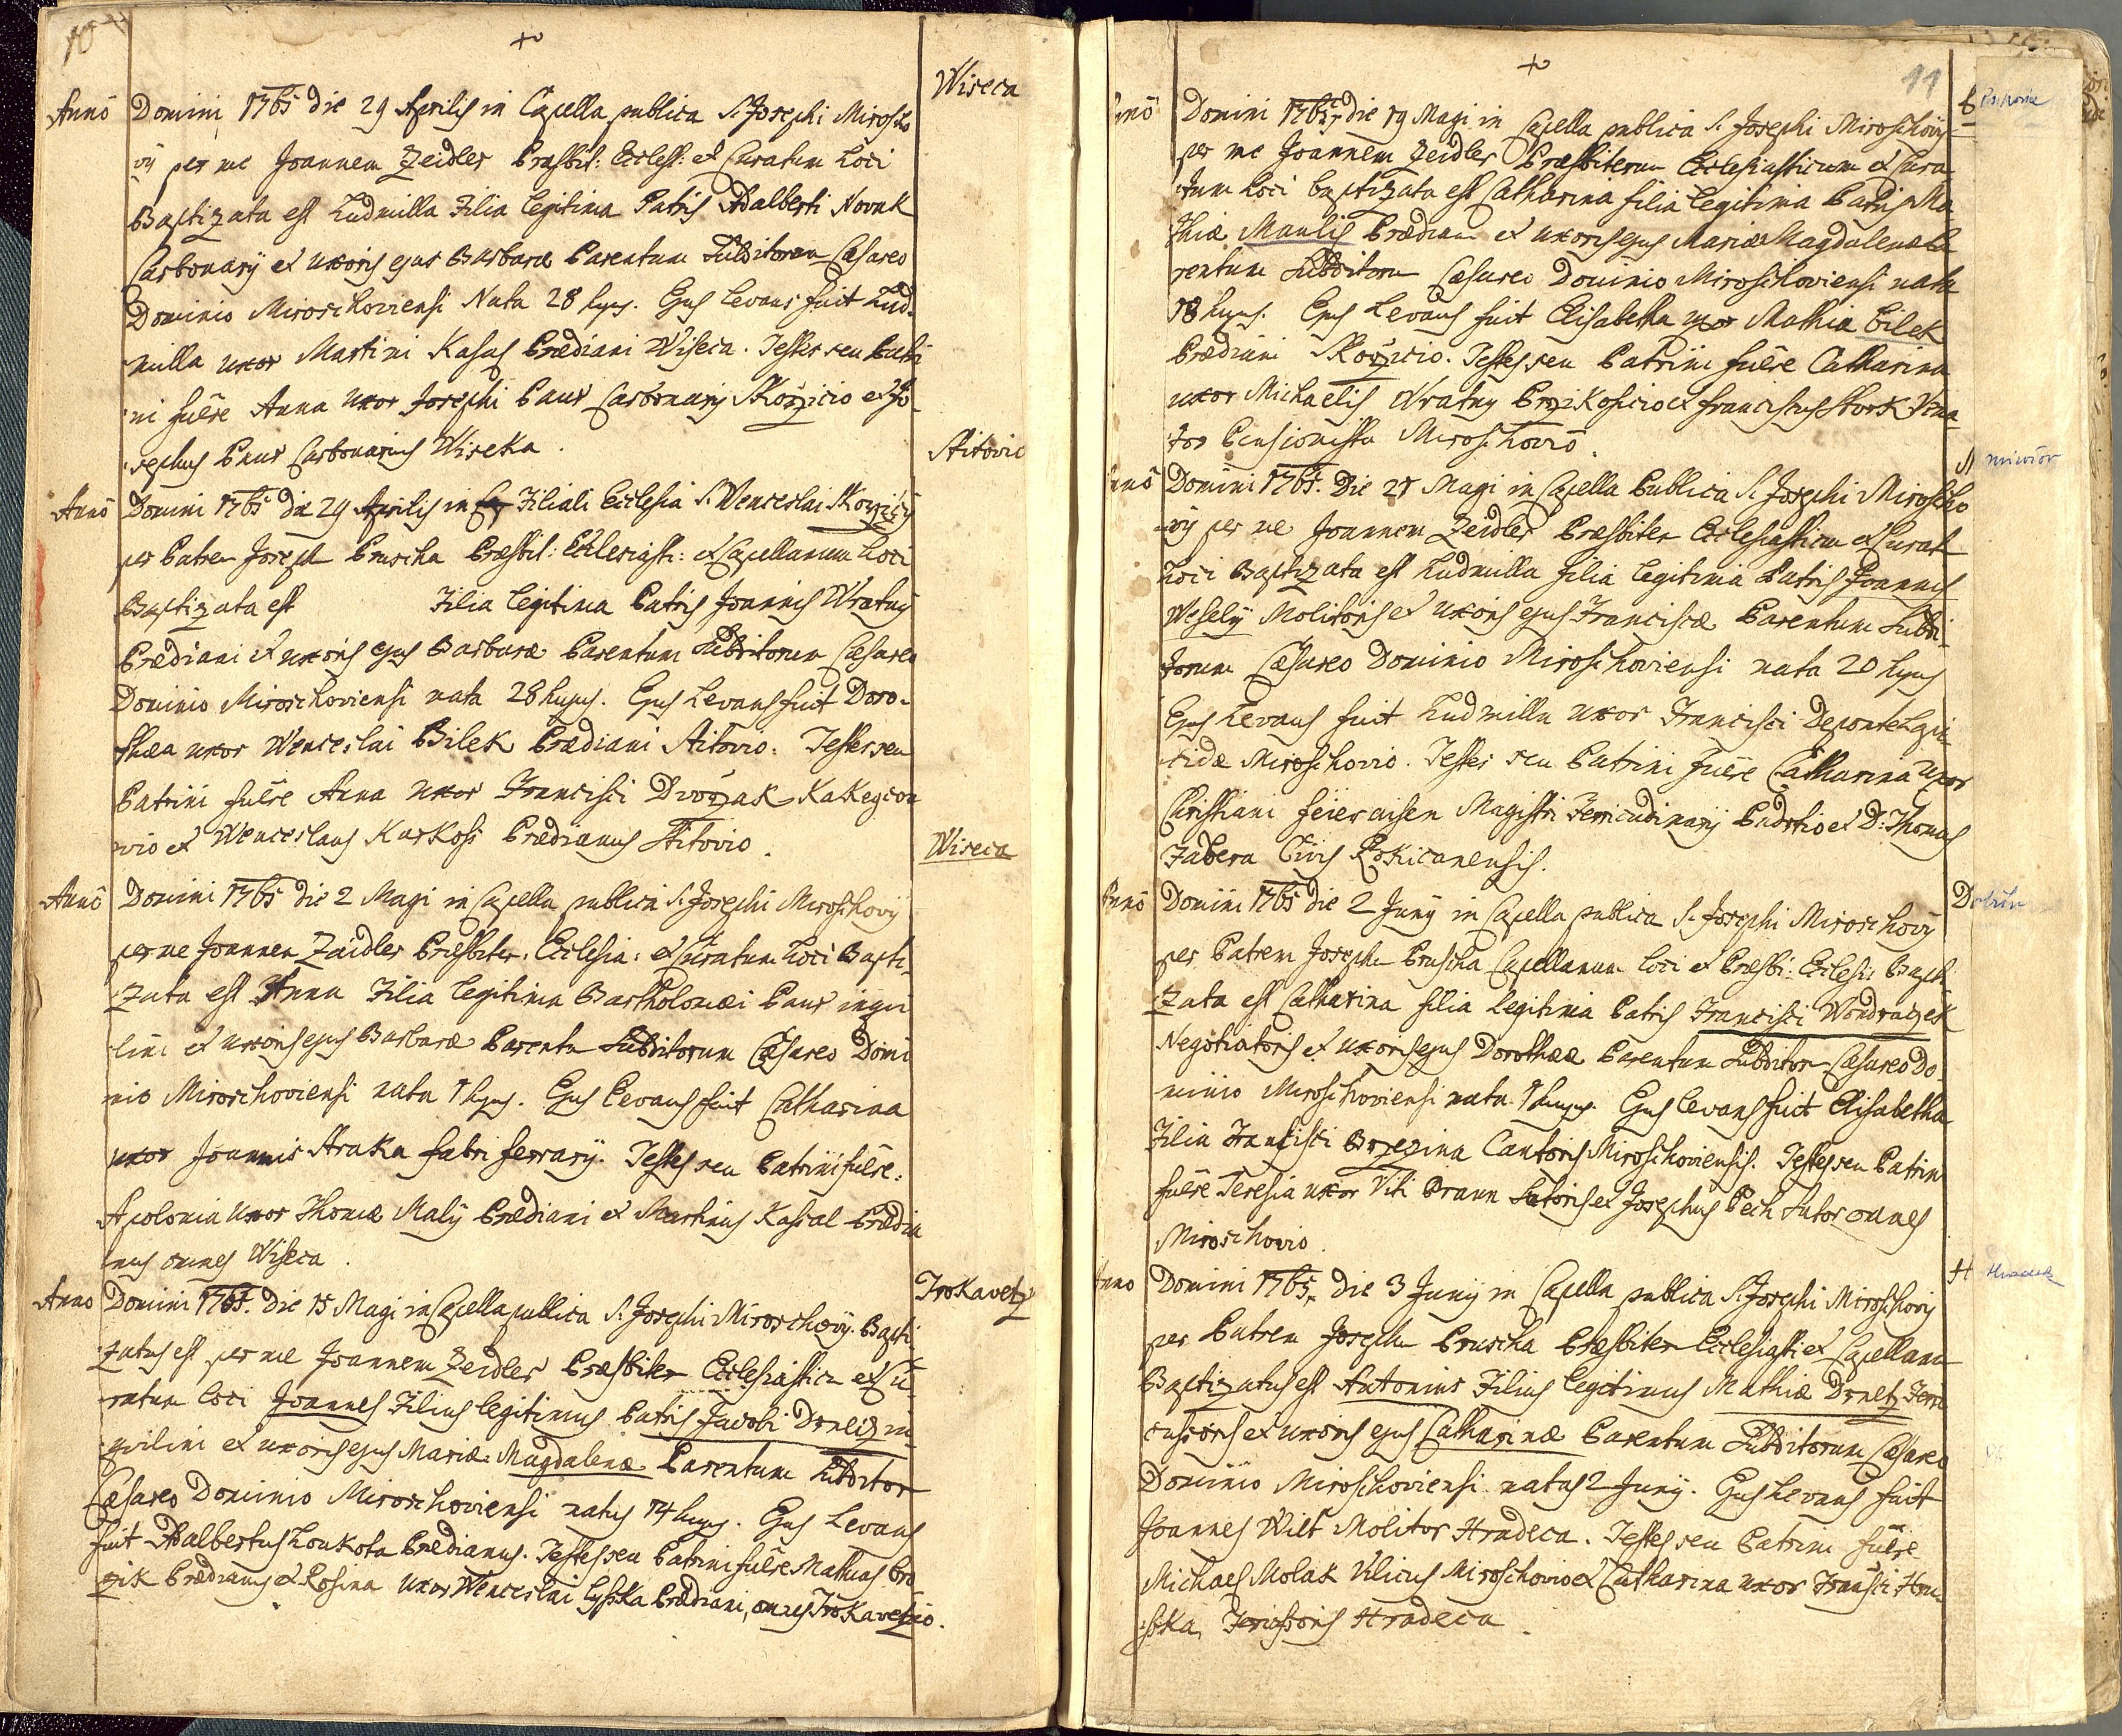 10
Wiseca
Anno Domini 1765 die 29 Aprilis in Capella publica S. Josephi Mirosho
vÿ per me Joannem Zeidler Præsbit: Ecclesi: et Curatum Loci
Baptizata est Ludmilla Filia legitima Patris Adalberti Novak
Carbonarÿ et uxoris ejus Barbaræ Parentum Subditorum Cæsareo
Dominio Miroschoviensi Nata 28 hujus. Ejus Levans fuit Lud-
milla uxor Martini Kasaj Prædiani Wiseca. Testes seu Patri
ni fuêre Anna Uxor Josephi Paur Carbonarÿ Skorzicio et Jo-
sephus Paur Carbonarius Wiseka.
Stitovio
Anno Domini 1765 die 29 Aprilis in Filiali Ecclesia S. Wenceslai Skorzicÿ
per Patrem Joseph Pruscha Præsbit: Ecclesiasti: et Capellanum Loci
Baptizata est Filia legitima Patris Joannis Wratnÿ
Prædiani et uxoris ejus Barbaræ Parentum Subditorum Cæsareo
Dominio Miroschoviensi nata 28 hujus. Ejus Levans fuit Doro-
thæa uxor Wenceslai Bilek Prædiani Stitovio. Testes seu
Patrini fuêre Anna Uxor Francisci Dvorzak Kakeycou
vio et Wenceslaus Kurkosi Prædianus Stitovio.
Wiseca
Anno Domini 1765 die 2 Maji in Capella publica S. Josephi Miroschovÿ
per me Joannem Zaidler Præsbiter. Ecclesia: et Curatum Loci Bapti
zata est Anna Filia legitima Bartholomæi Paur inqui
lini et uxoris ejus Barbaræ Parentu Subditorum Cæsareo Domi
nio Miroschoviensi nata 1 hujus. Ejus Levans fuit Catharina
uxor Joannis Straka fabri ferrarÿ. Testes seu Patrini fuêre:
Apolonia Uxor Thomæ Malÿ Prædiani et Martinus Kasal Prædia
nus omnes Wiseca.
Trokavetz
Anno Domini 1765. Die 15 Maji in Capella publica S. Josephi Miroschovÿ. Bapti
zatus est per me Joannem Zeidler Præsbiter Ecclesiasticu et Cu
ratum loci Joannes Filius legitimus Patris Jacobi Drnetz in
quilini et uxoris ejus Mariæ Magdalenæ Parentum Subditor
Cæsareo Dominio Miroschoviensi natus 14 hujus. Ejus Levans
fuit Adalbertus Loukota Prædianus. Testes seu Patrini fuêre Mathias Bro
zik Prædianus et Rosina Uxor Wenceslai Lysska Prædiani, omnes Trokavetzio.
11
Anno Domini 1765 die 19 Maji in Capella publica S. Josephi Miroschovÿ
per me Joannem Zeidler Præsbiterum Ecclesiasticum et Cura
tum Loci baptizata est Catharina filia legitima Patris Ma
thiæ Maulis Prædiani et uxoris ejus Mariæ Magdalenæ Pa
rentum Subditoru Cæsareo Dominio Miroschoviensi nata
18 hujus. Ejus Levans fuit Elisabetha uxor Mathiæ Bilek
Prædiani Skorzicio. Testes seu Patrini fuêre Catharina
uxor Michaelis Wratny Przikosicio et Franciscus Stork Vena
tor Pensionista Miroschovio.
Anno Domini 1765. Die 21 Maji in Capella Publica S. Josephi Miroscho
vÿ per me Joannem Zeidler Præsbiter Ecclesiasticu et Curat
Loci Baptizata est Ludmilla filia legitima Patris Joannis
Weselÿ Molitoris et uxoris ejus Franciscæ Parentum Subdi
torum Cæsareo Dominio Miroschoviensi nata 20 hujus
Ejus Levans fuit Ludmilla uxor Francisci Deponte Lapi
cidæ Miroschovio. Testes seu Patrini fuêre Catharina Uxor
Christiani feiereisen Magistri Ferricudinarÿ Padrtio et D: Thomas
Zabera Civis Rokicanensis.
Anno Domini 1765 die 2 Junÿ in Capella publica S. Josephi Miroschovÿ
per Patrem Joseph Pruscha Capellanum loci et Præsbi: Ecclesi: Bapti
zata est Catharina filia legitima Patris Francisci Wondraczek
Negotiatoris et uxoris ejus Dorothæa Parentum Subditor Cæsareo Do-
minio Miroschoviensi nata 1 hujus. Ejus levans fuit Elisabetha
Filia Francisci Brzezina Cantoris Miroschoviensis. Testes seu Patrini
fuêre Teresia uxor Viti Praun Sutoris et Josephus Pech Sutor omnes
Miroschovio.
Hradek
Anno Domini 1765. die 3 Junÿ in Capella publica S. Josephi Miroschovÿ
per Patrem Joseph Pruscha Præsbiter Ecclesiasti et Capellanu
Baptizatus est Antonius Filius legitimus Mathiæ Drnetz Ferri
cussoris et uxoris ejus Catharinæ Parentum Subditorum Cæsareo
Dominio Miroschoviensi natus 2 Junÿ. Ejus Levans fuit
Joannes Wilt Molitor Hradeca. Testes seu Patrini fuêre
Michael Molak Vilicus Miroschovio et Catharina uxor Francisci Hru
sska, Fericussoris Hradeca.